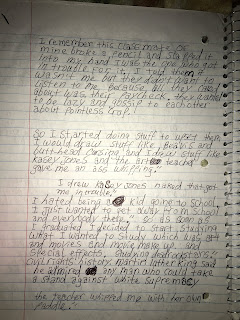 I remember this class mate of
mine broke a pencil and stabbed it
into my hand I was the one who got
in trouble for it I told them it
wasn't me but they didn't want to
listen to me because all they cared
about was their paycheck, they wanted
to be lazy and gossip to each other
about pointless crap.
So I started doing stuff to upset them
I would draw stuff like Beavis and
butt-head cursing and I drew stuff like
Kasey Jones and the art teacher
gave me an ass whipping.
I drew Kasey Jones naked that got
me in trouble.
I hated being a kid going to school,
I just wanted to get away from school
and everybody there, so as soon as
I graduated I decided to start studying
what I wanted to study which was art
and movies and movie make up and
special effects,
civil rights history martin luther king said
he admired any man who could take
a stand against white supremacy
the teacher whipped me with her own
paddle.